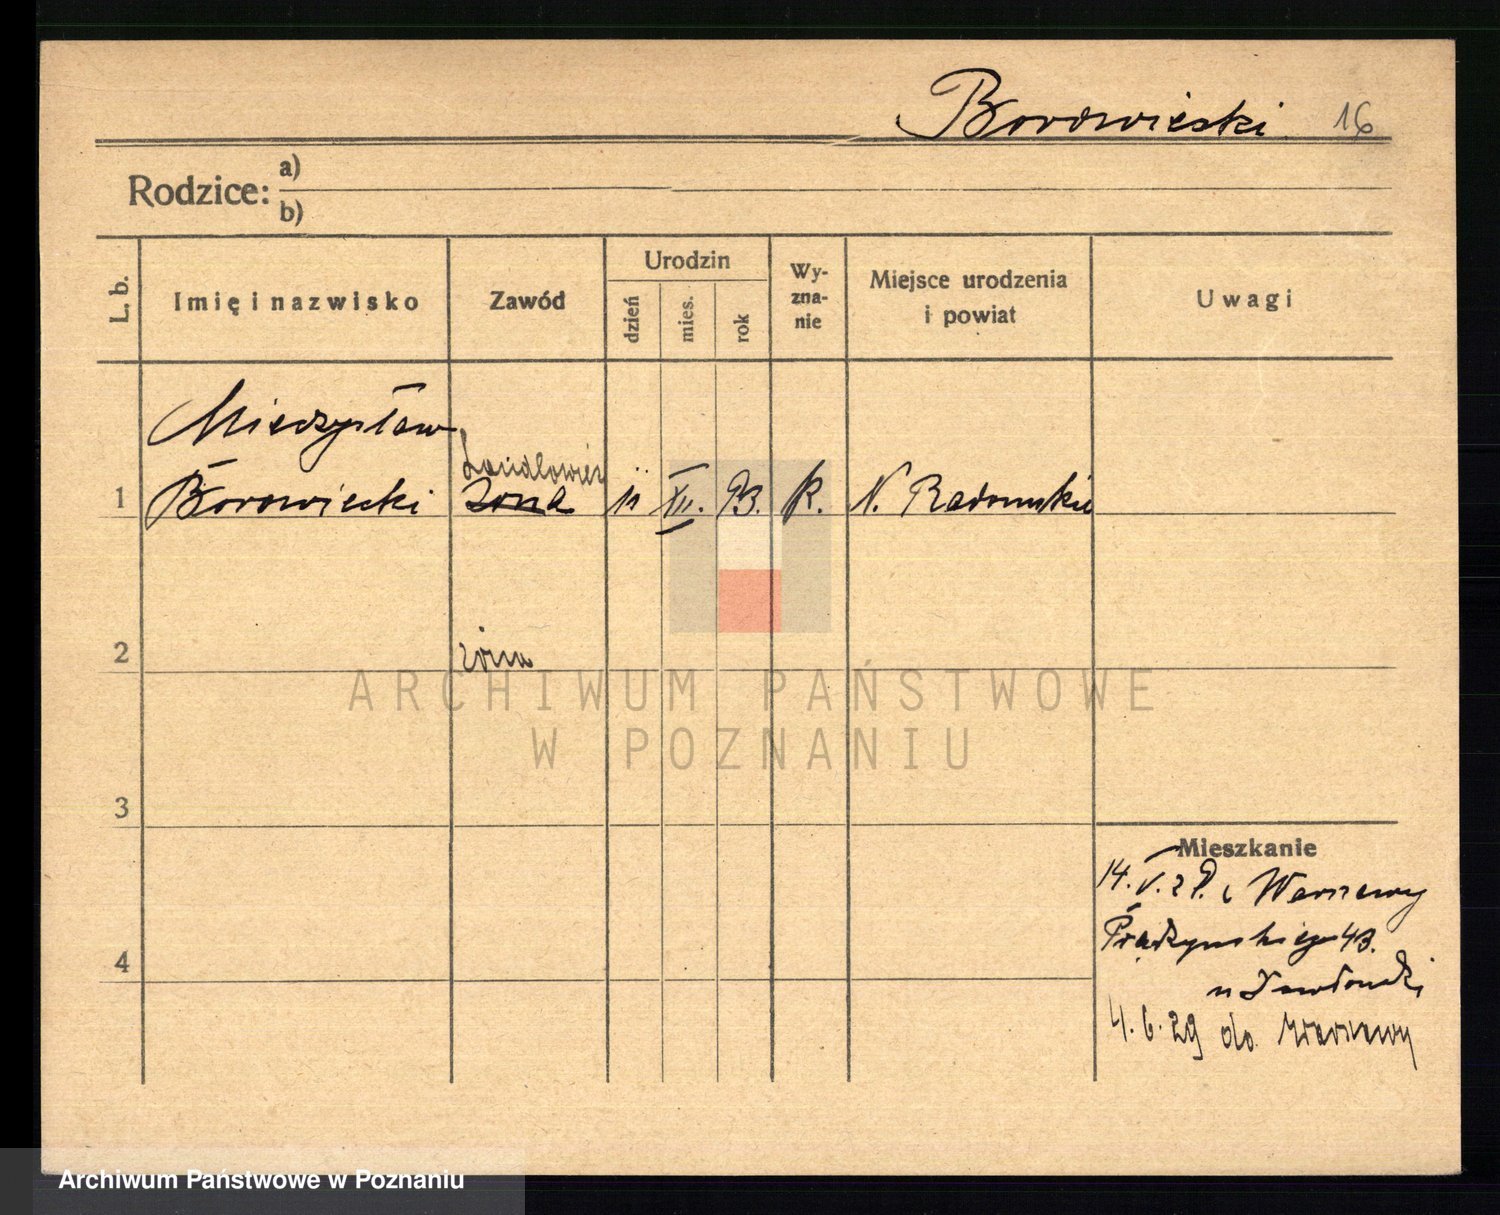 Borowiecki 16
Rodzice: a)
b)
L. b.
Imię i nazwisko
Zawód
Urodzin
dzień
mies.
rok
Wy-
zna-
nie
Miejsce urodzenia
i powiat
Uwagi
Mieczysław
1 Borowiecki żona 11 XII. 93. R. N. Radomskie
2 żona
3
4
Mieszkanie
14. V. 29. z Warszawy
Prądzyńskiego 43.
4.6.29 do Warszawy
ARCHIWUM PAŃSTWOWE
W POZNANIU
Archiwum Państwowe w Poznaniu